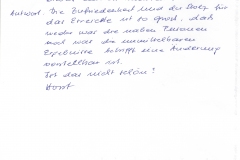 Antwort. Die Zufriedenheit und der Stolz für
das Erreichte ist so groß, daß
weder was die nahen Personen
noch was die unmittelbaren
Ergebnisse betrifft eine Änderung
vorstellbar ist.
Ist das nicht schön?
Horst